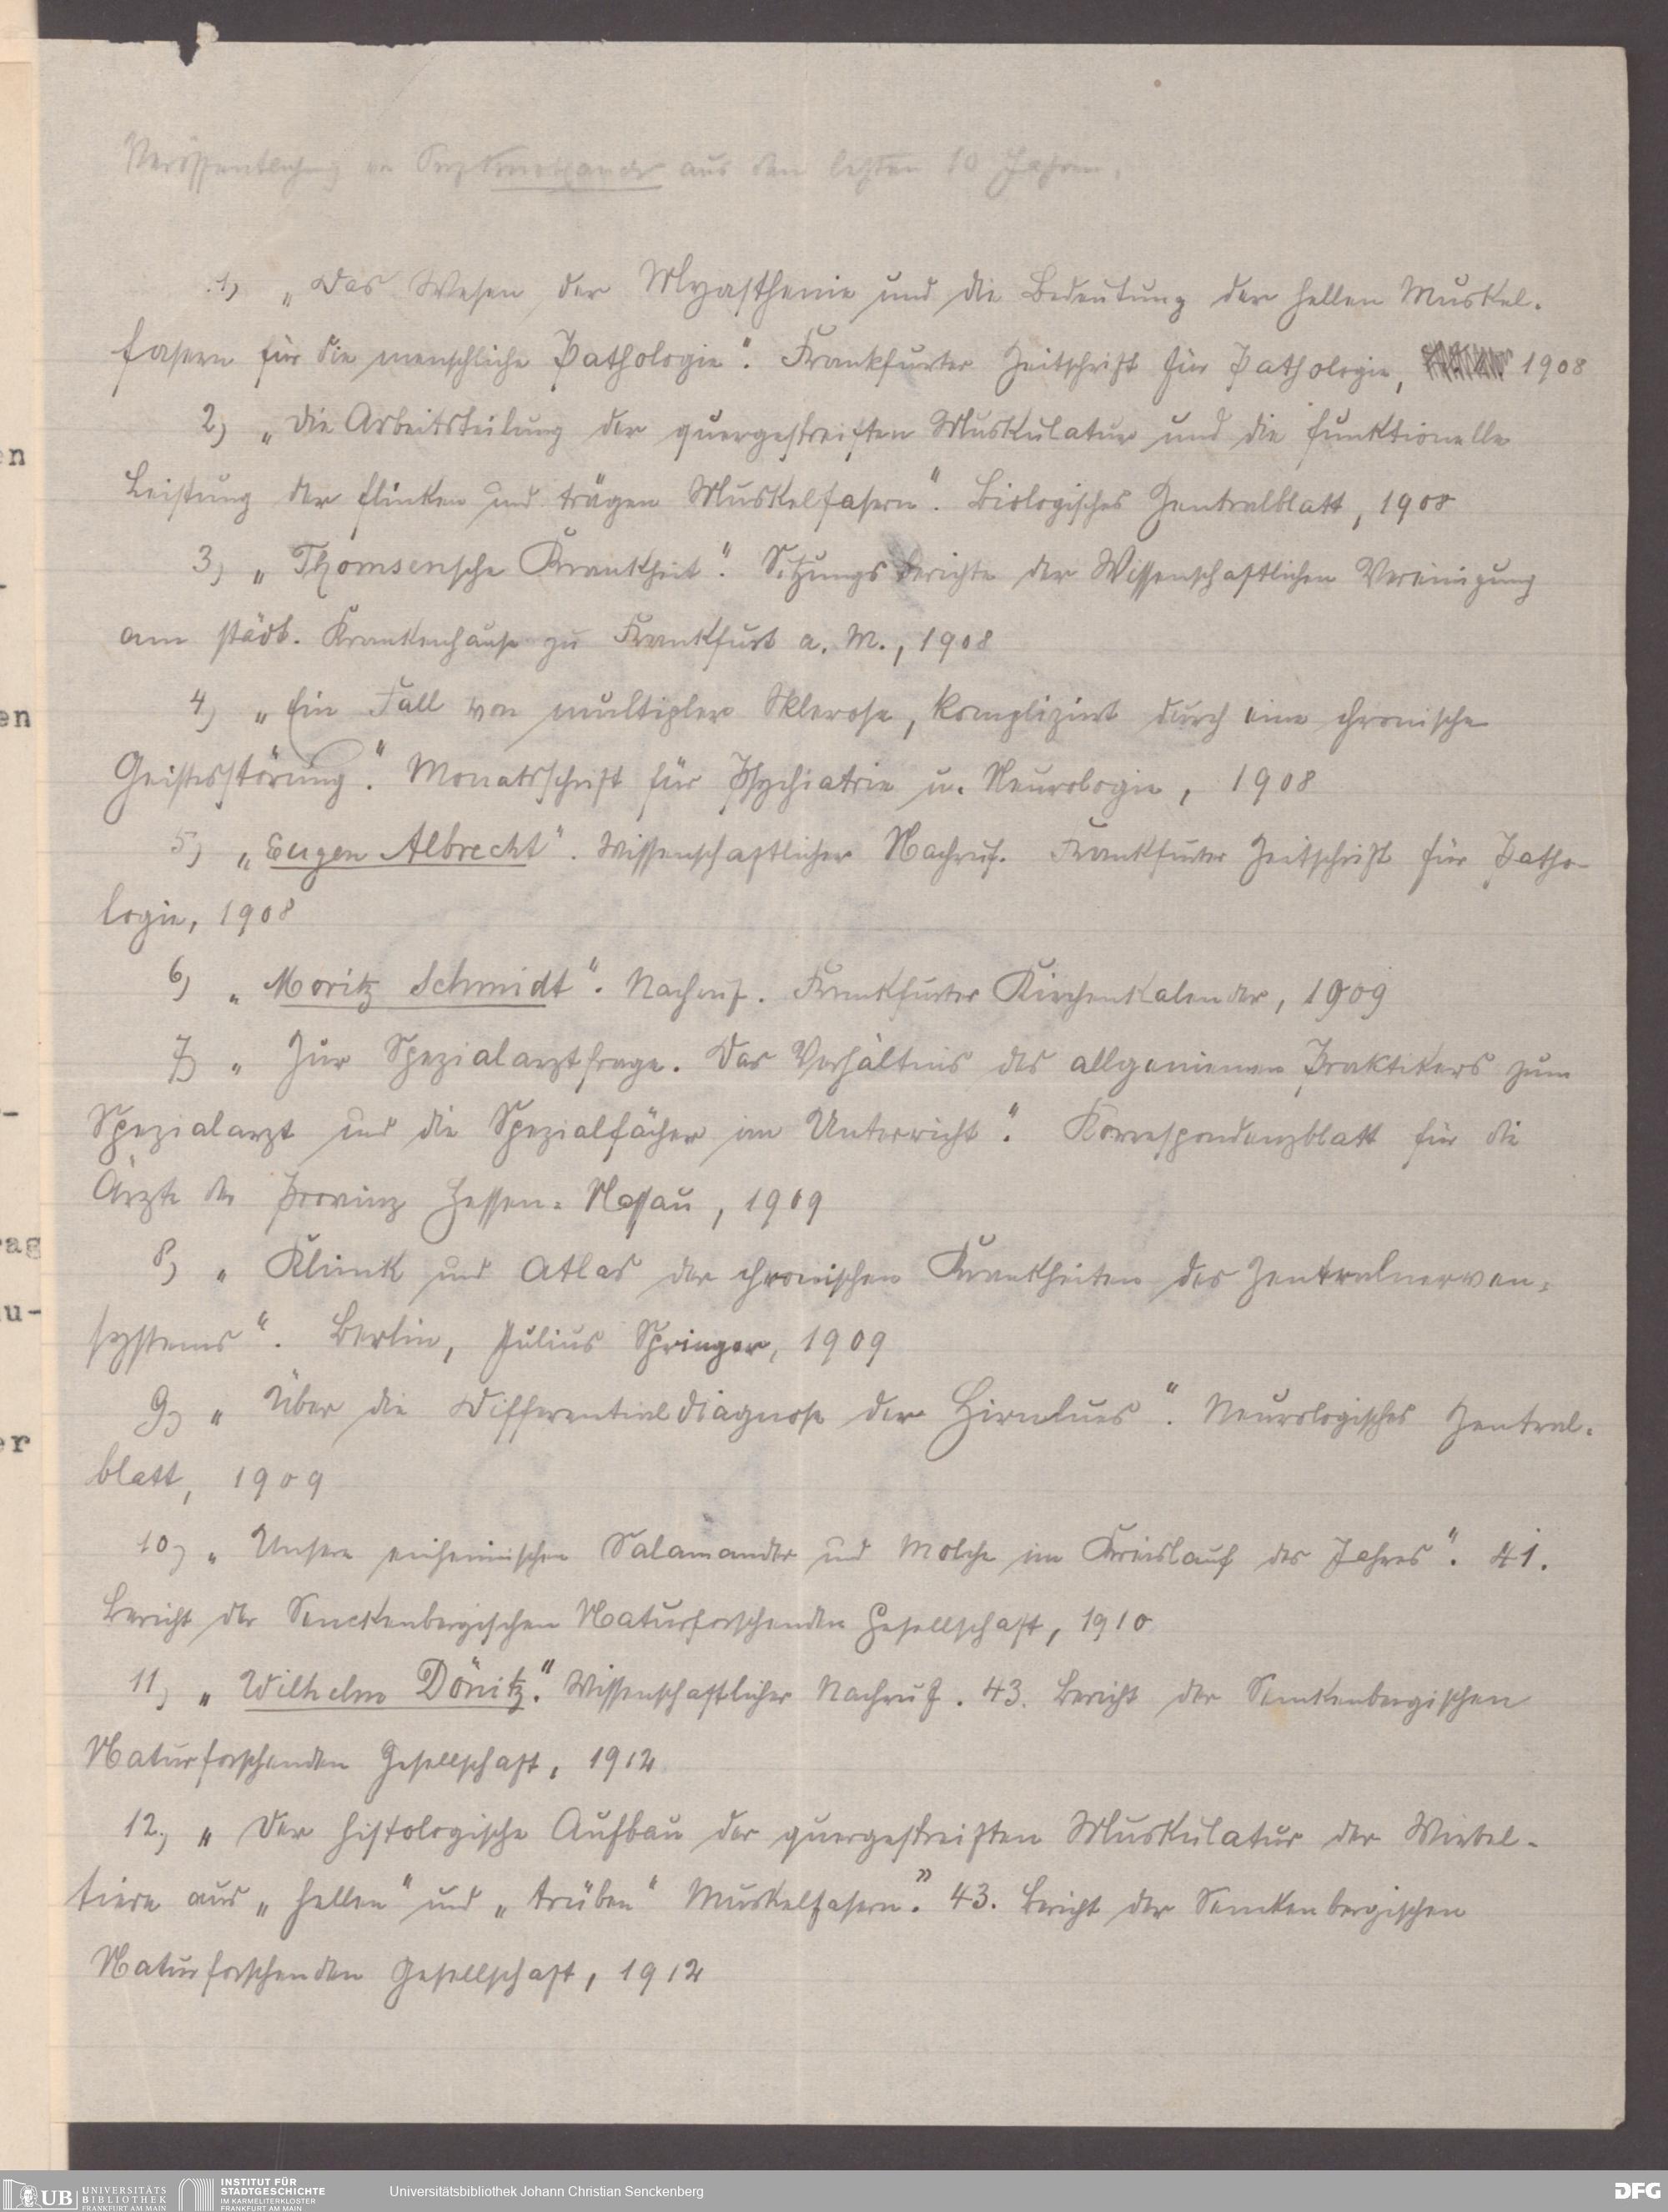 Veröffentlichung aus den letzten 10 Jahren.
1) „Das Wesen der Myasthenie und die Bedeutung der hellen Muskel-
fasern für die menschliche Pathologie“. Frankfurter Zeitschrift für Pathologie, 1908
2) „Die Arbeitsteilung der quergestreiften Muskulatur und die funktionelle
Leistung der flinken und trägen Muskelfasern“. Biologisches Zentralblatt, 1908
3) „Thomsensche Krankheit“. Sitzungsberichte der Wissenschaftlichen Vereinigung
am städt. Krankenhause zu Frankfurt a. M., 1908
4) „Ein Fall von multipler Sklerose, kompliziert durch eine chronische
Geistesstörung“. Monatsschrift für Psychiatrie u. Neurologie, 1908
5) „Eugen Albrecht“. Wissenschaftlicher Nachruf. Frankfurter Zeitschrift für Patho-
logie, 1908
6) „Moritz Schmidt“. Nachruf. Frankfurter Kirchenkalender, 1909
7) „Zur Spezialarztfrage. Das Verhältnis des allgemeinen Praktikers zum
Spezialarzt und die Spezialfächer im Unterricht“. Korrespondenzblatt für die
Ärzte der Provinz Hessen-Nassau, 1909
8) „Klinik und Atlas der chronischen Krankheiten des Zentralnerven-
systems“. Berlin, Julius Springer, 1909
9) „Über die Differentialdiagnose der Hirnlues“. Neurologisches Zentral-
blatt, 1909
10) „Unsere einheimischen Salamander und Molche im Kreislauf des Jahres“. 41.
Bericht der Senckenbergischen Naturforschenden Gesellschaft, 1910
11) „Wilhelm Dönitz“. Wissenschaftlicher Nachruf. 43. Bericht der Senckenbergischen
Naturforschenden Gesellschaft, 1912
12) „Der histologische Aufbau der quergestreiften Muskulatur der Wirbel-
tiere aus „hellen“ und „trüben“ Muskelfasern.” 43. Bericht der Senckenbergischen
Naturforschenden Gesellschaft, 1912
en
-
en
-
rag
u-
er
UB UNIVERSITÄTS
BIBLIOTHEK
FRANKFURT AM MAIN
INSTITUT FÜR
STADTGESCHICHTE
IM KARMELITERKLOSTER
FRANKFURT AM MAIN
Universitätsbibliothek Johann Christian Senckenberg
DFG